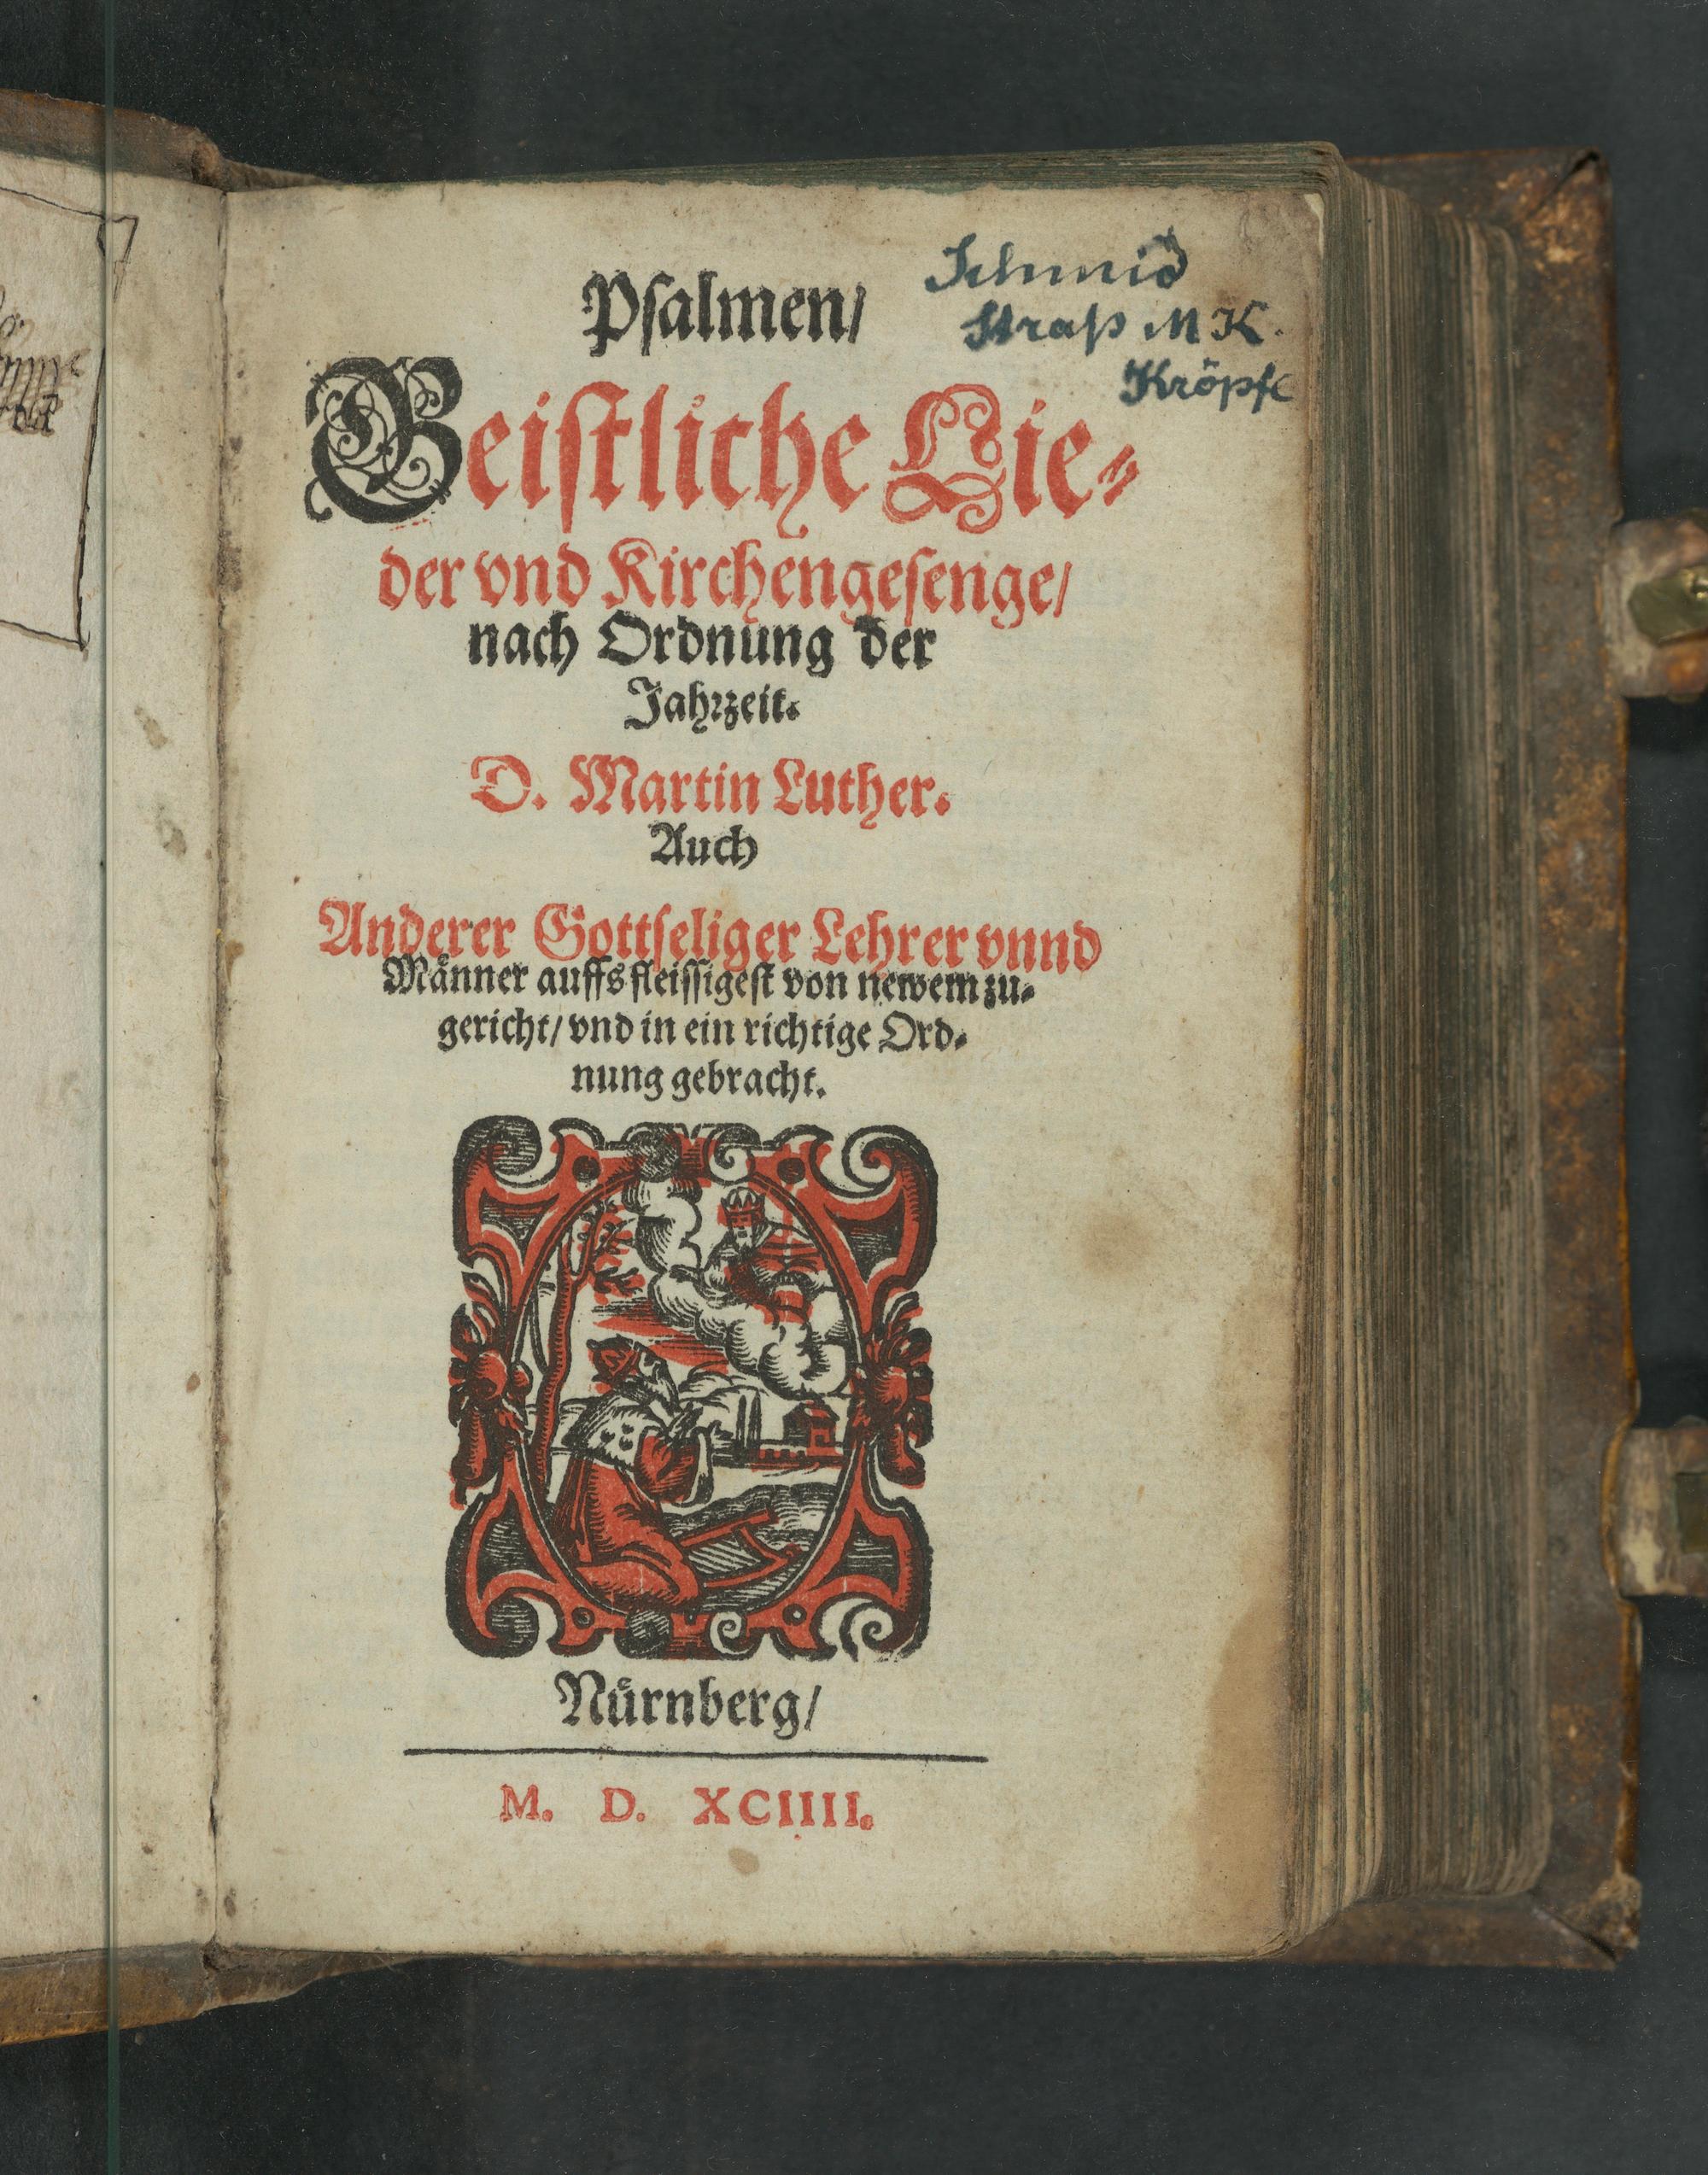 Schmid
Straß M K.
Kröpfe
Psalmen/
Geistliche Lie-
der vnd Kirchengesenge/
nach Ordnung der
Jahrzeit.
D. Martin Luther.
Auch
Anderer Gottseliger Lehrer vnnd
Maͤnner auffs fleissigest von newem zu-
gericht/ vnd in ein richtige Ord-
nung gebracht.
Nuͤrnberg/
M. D. XCIIII.